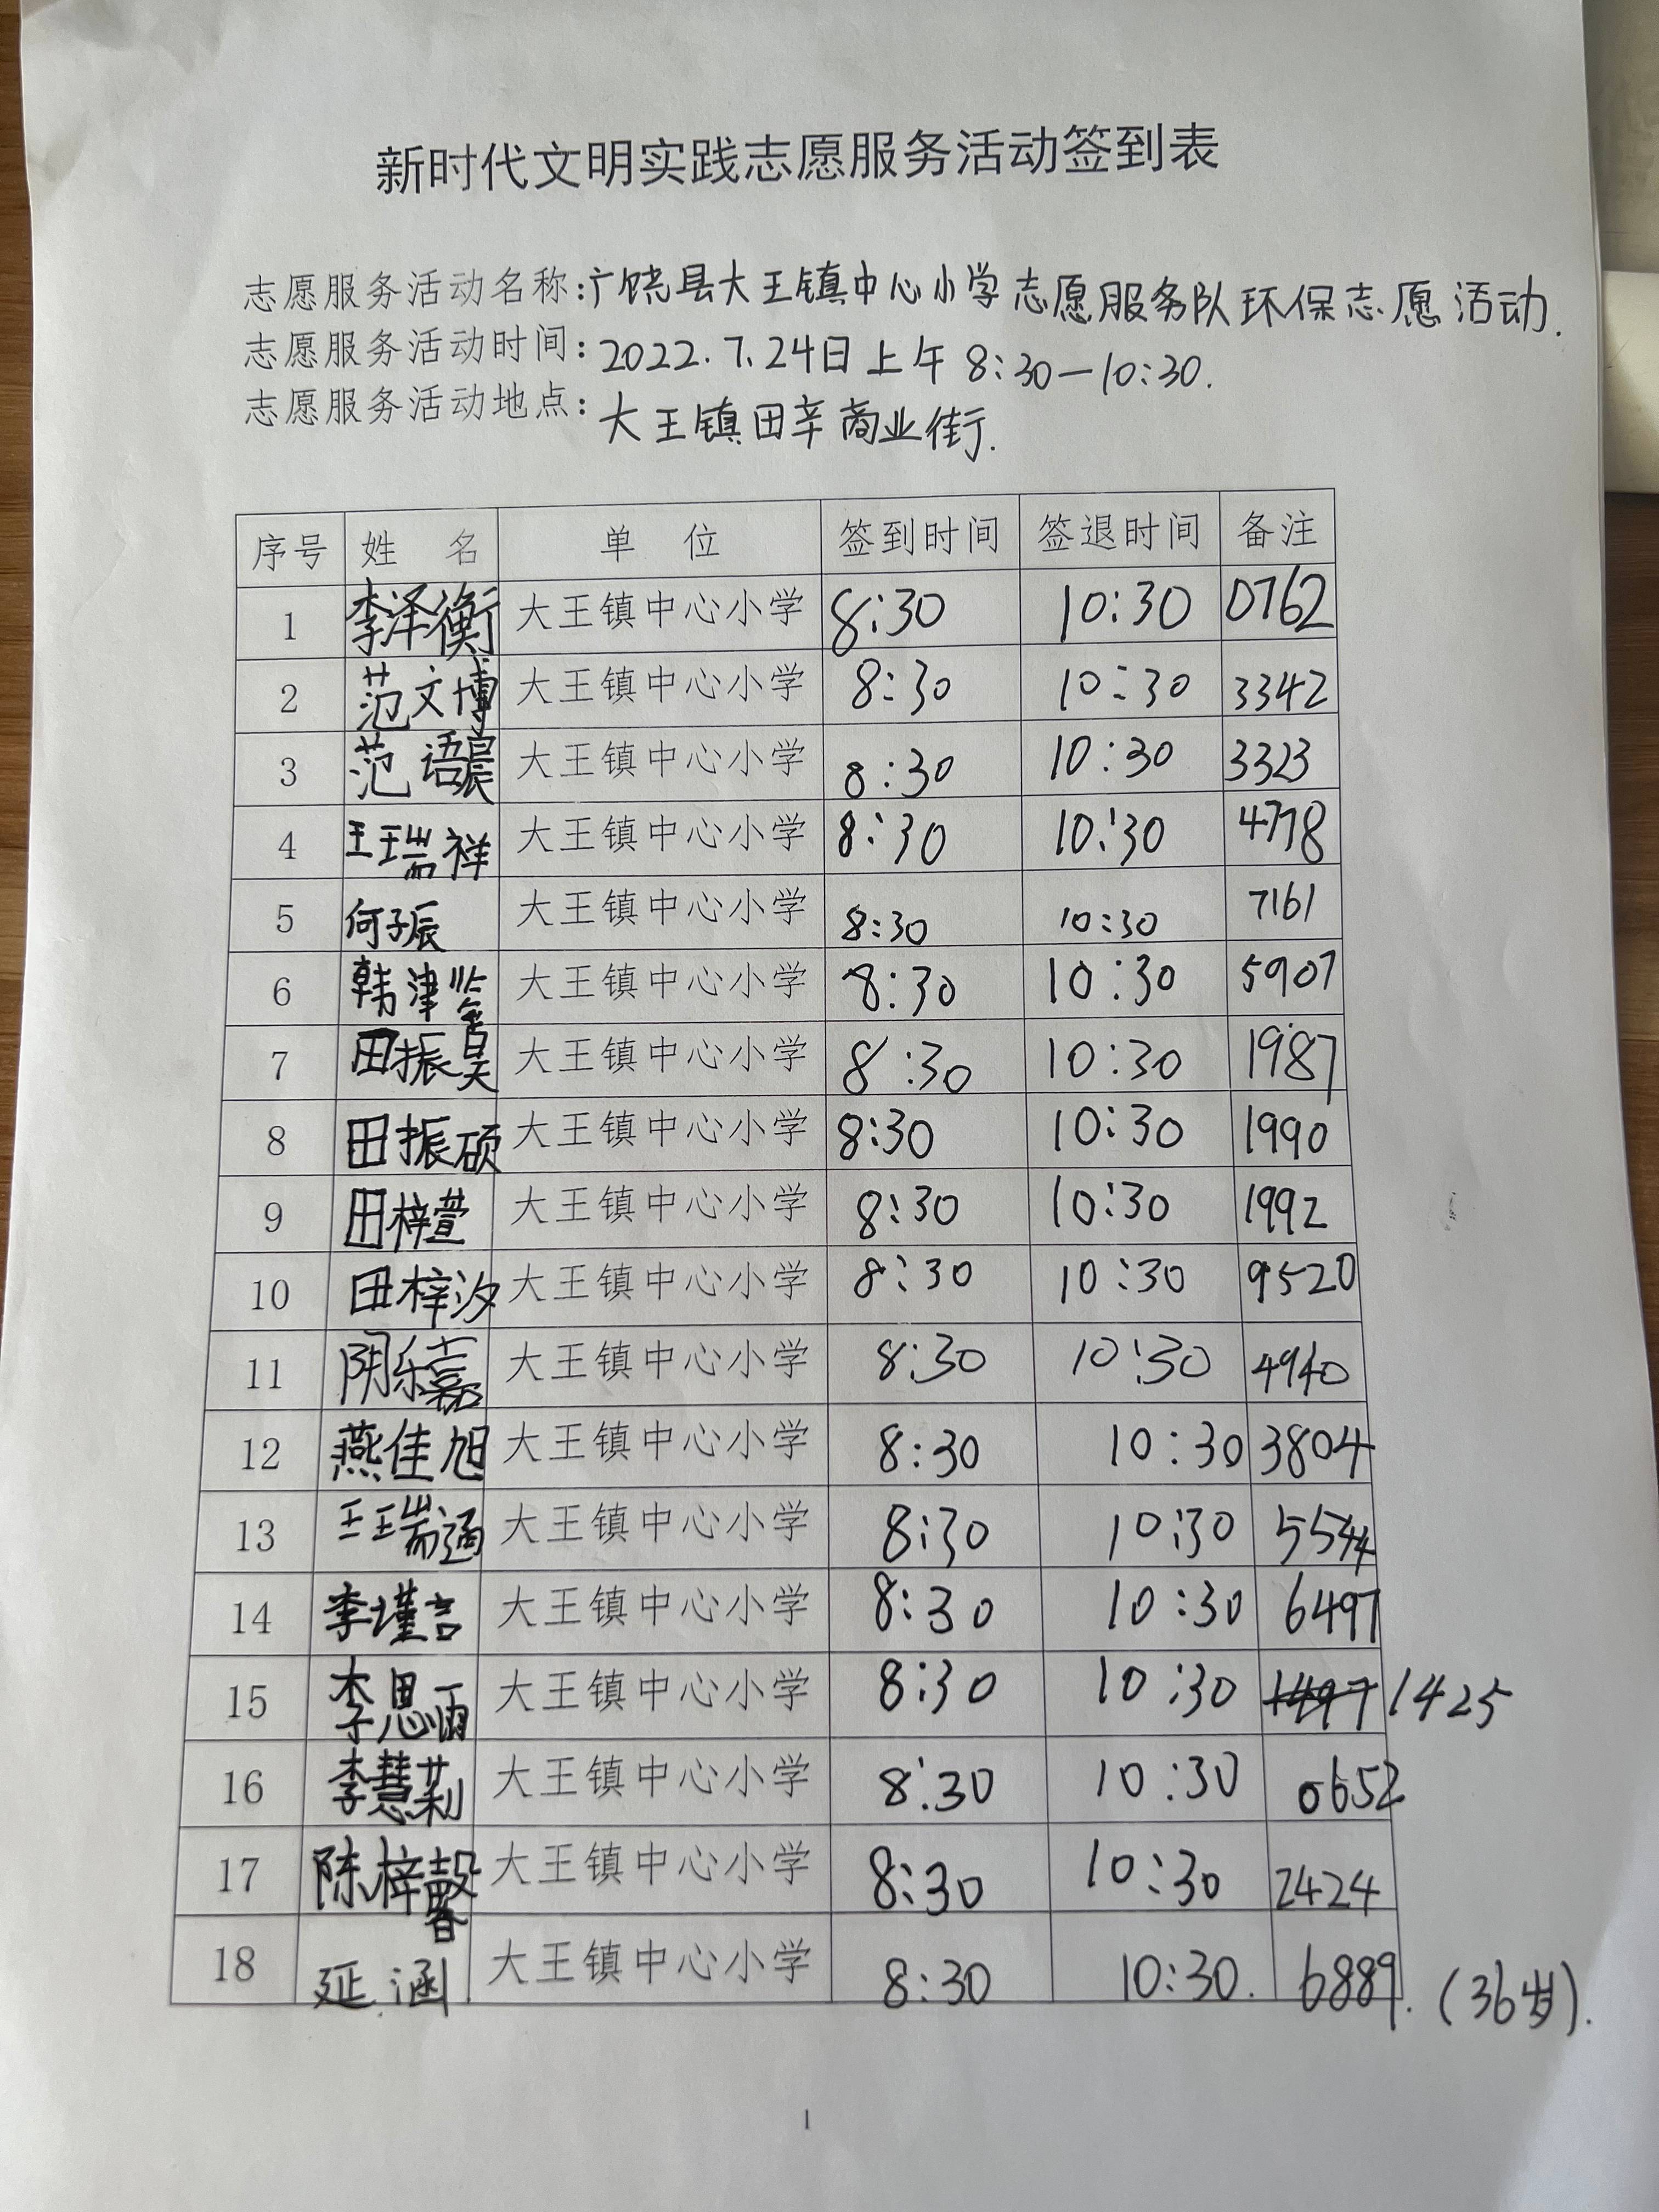 新时代文明实践志愿服务活动签到表
志愿服务活动名称:广饶县大王镇中心小学志愿服务队环保志愿活动.
志愿服务活动时间:2022.7.24日上午8:30—10:30.
志愿服务活动地点:大王镇田辛商业街.
序号 姓 名 单 位 签到时间 签退时间 备注
1 李泽衡 大王镇中心小学 8:30 10:30 0762
2 范文博 大王镇中心小学 8:30 10:30 3342
3 范语晨 大王镇中心小学 8:30 10:30 3323
4 王瑞祥 大王镇中心小学 8:30 10:30 4778
5 何子辰 大王镇中心小学 8:30 10:30 7161
6 韩津鉴 大王镇中心小学 8:30 10:30 5907
7 田振昊 大王镇中心小学 8:30 10:30 1987
8 田振硕 大王镇中心小学 8:30 10:30 1990
9 田梓萱 大王镇中心小学 8:30 10:30 1992
10 田梓汐 大王镇中心小学 8:30 10:30 9520
11 阴乐嘉 大王镇中心小学 8:30 10:30 4940
12 燕佳旭 大王镇中心小学 8:30 10:30 3804
13 王瑞涵 大王镇中心小学 8:30 10:30 5544
14 李瑾言 大王镇中心小学 8:30 10:30 6497
15 李思雨 大王镇中心小学 8:30 10:30 1425
16 李慧莉 大王镇中心小学 8:30 10:30 0652
17 陈梓馨 大王镇中心小学 8:30 10:30 2424
18 延涵 大王镇中心小学 8:30 10:30. 6889. (36岁).
1